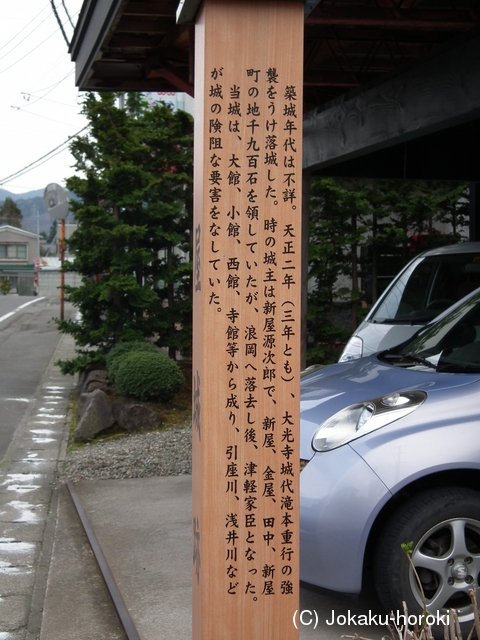 築城年代は不詳。天正二年（三年とも）、大光寺城代滝本重行の強
襲をうけ落城した。時の城主は新屋源次郎で、新屋、金屋、田中、新屋
町の地千九百石を領していたが、浪岡へ落去し後、津軽家臣となった。
当城は、大館、小館、西館、寺館等から成り、引座川、浅井川など
が城の険阻な要害をなしていた。
(C) Jokaku-horoki